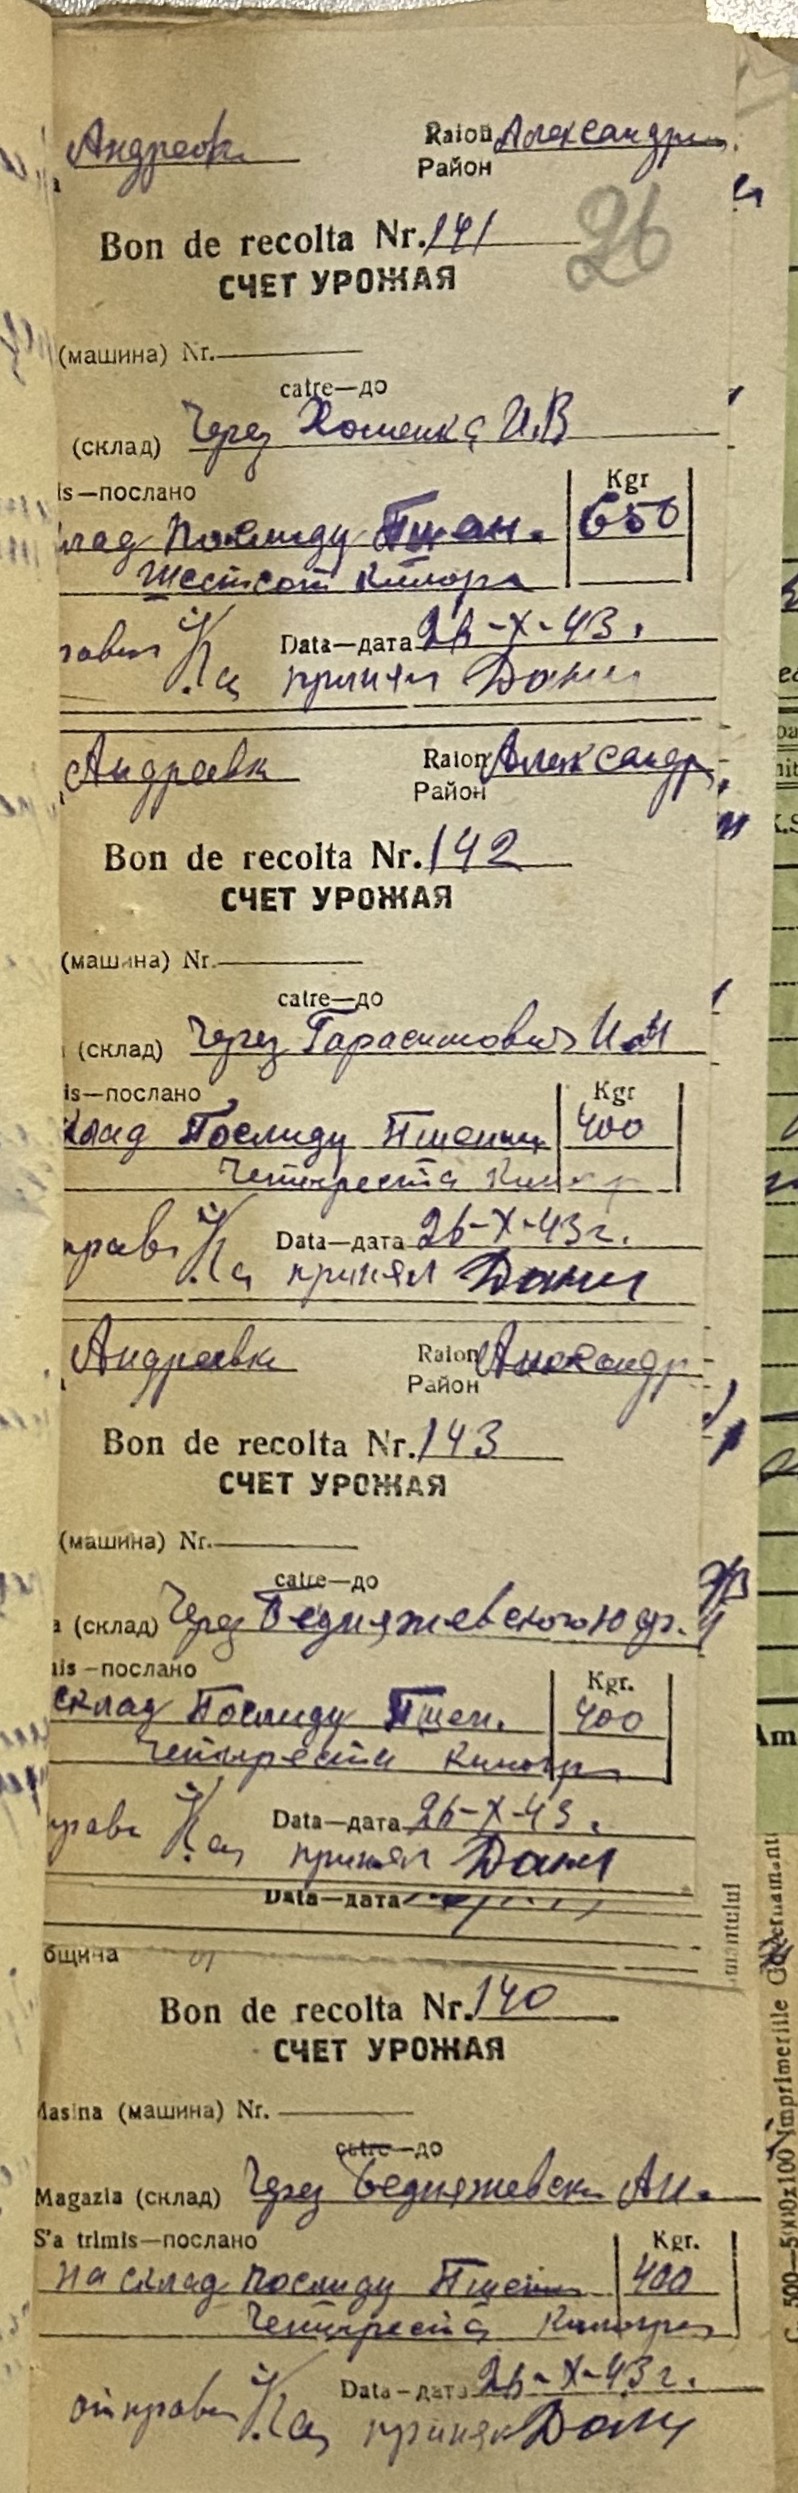 Андреевк Raion Александр
Район
Bon de recolta Nr. 141
26
СЧЕТ УРОЖАЯ
(машина) Nr.
catre—до
(склад) Через Хоменка И.В
is—послано Kgr
лад Послиду Пшен. 650
Шестсот килогр
Data—дата 26-X-43.
принял Дани
Андреевк Raion Александр
Район
Bon de recolta Nr. 142
СЧЕТ УРОЖАЯ
(машина) Nr.
catre—до
(склад) Через Гарасимович И.М
is—послано Kgr
клад Послиду Пшениц 400
Четыреста Килогр
прав Data—дата 26-X-43г.
принял Дани
Андреевк Raion Александр
Район
Bon de recolta Nr. 143
СЧЕТ УРОЖАЯ
(машина) Nr.
catre—до
a (склад) Через Ю
is—послано Kgr.
склад Послиду Пшен. 400
Четыреста Килогр
прав Data—дата 26-X-43.
принял Дани
Data—дата
бщина
Bon de recolta Nr. 140
СЧЕТ УРОЖАЯ
Masina (машина) Nr.
catre—до
Magazia (склад) Через Ан.
S'a trimis—послано Kgr.
на склад послиду Пшен 400
Четыреста Килогр
Data—дата 26-X-43г.
отправ принял Дани